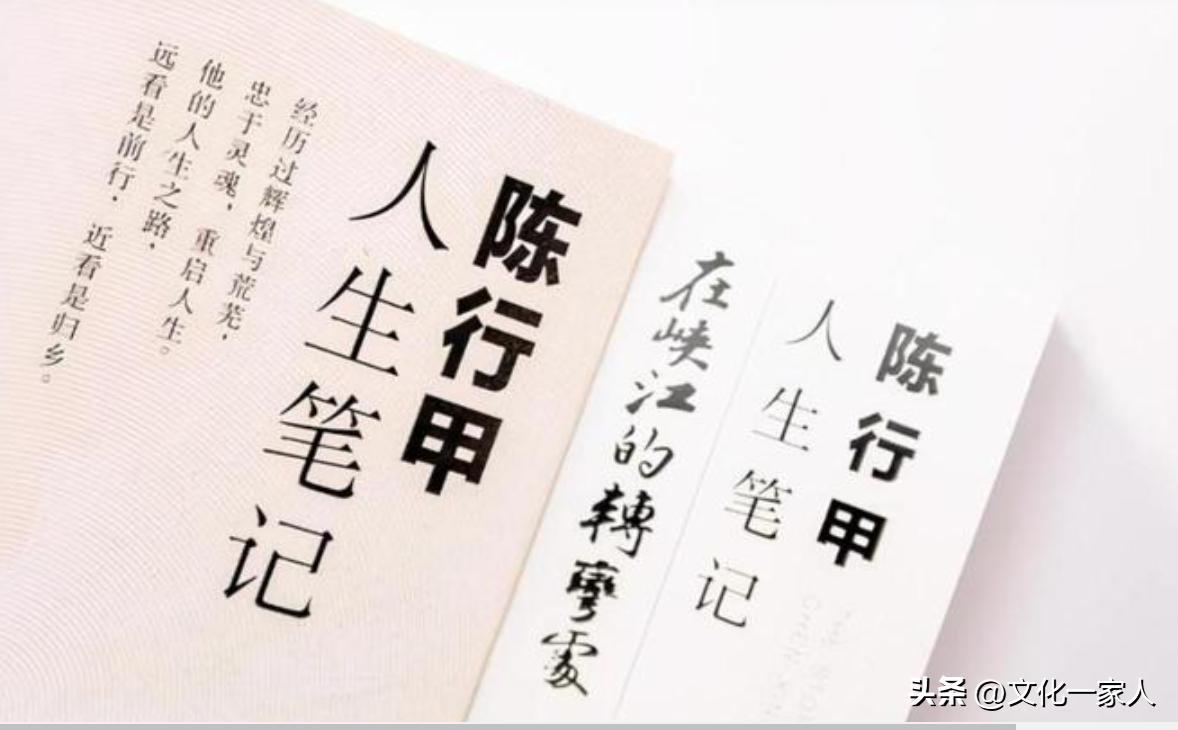 陈行甲
人生笔记
经历过辉煌与荒芜，
忠于灵魂，重启人生。
他的人生之路，
远看是前行，近看是归乡。
陈行甲
人生笔记
在峡江的轉彎處
头条 @文化一家人